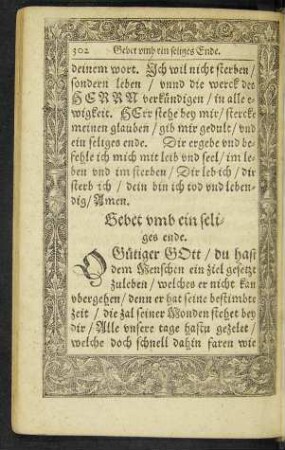 302 Gebet vmb ein seliges Ende.
deinem wort. Ich wil nicht sterben /
sondern leben / vnnd die werck des
HERRN verkündigen / in alle e-
wigkeit. HErr stehe bey mir / stercke
meinen glauben / gib mir gedult / vnd
ein seliges ende. Dir ergebe vnd be-
fehle ich mich mit leib vnd seel / im le-
ben vnd im sterben / Dir leb ich / dir
sterb ich / dein bin ich tod vnd leben-
dig / Amen.
Gebet vmb ein seli-
ges ende.
O Gütiger GOtt / du hast
dem Menschen ein ziel gesetzt
zuleben / welches er nicht kan
vbergehen / denn er hat seine bestimbte
zeit / die zal seiner Monden stehet bey
dir / Alle vnsere tage hastu gezelet /
welche doch schnell dahin faren wie